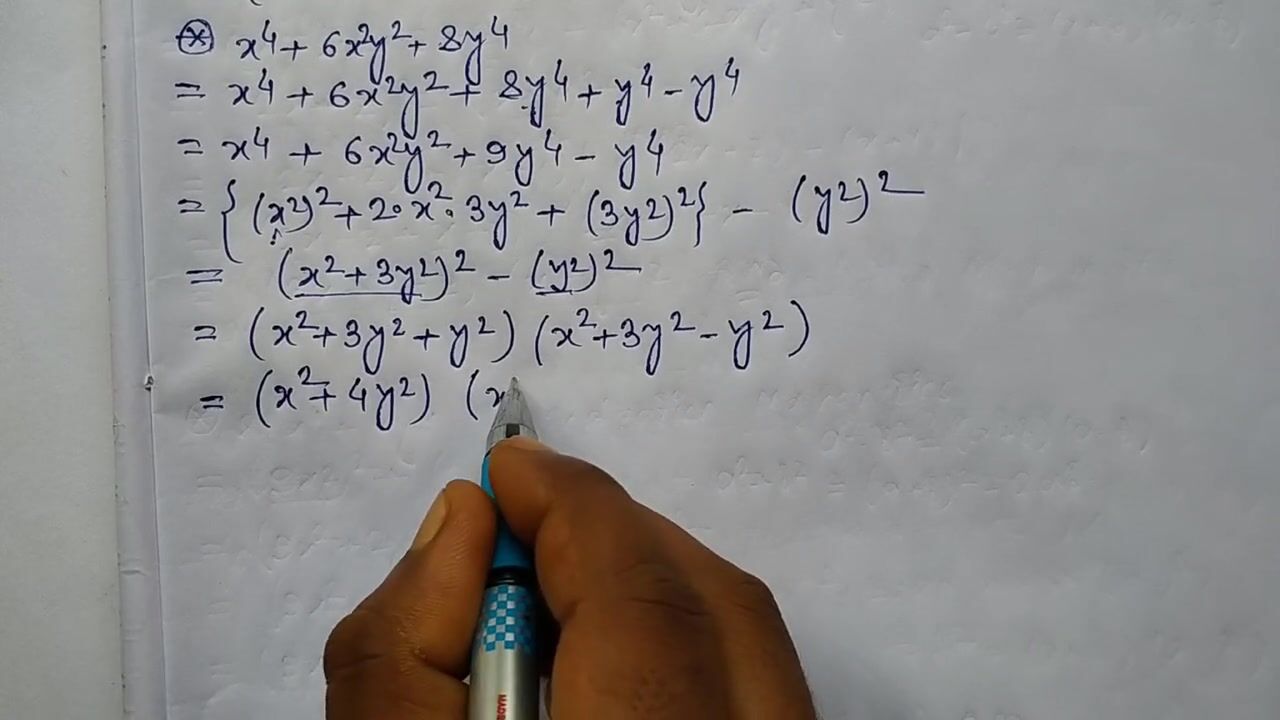 ⊛ x⁴ + 6x²y² + 8y⁴
= x⁴ + 6x²y² + 8y⁴ + y⁴ - y⁴
= x⁴ + 6x²y² + 9y⁴ - y⁴
= {(x²)² + 2·x²·3y² + (3y²)²} - (y²)²
= (x² + 3y²)² - (y²)²
= (x² + 3y² + y²) (x² + 3y² - y²)
= (x² + 4y²) (x